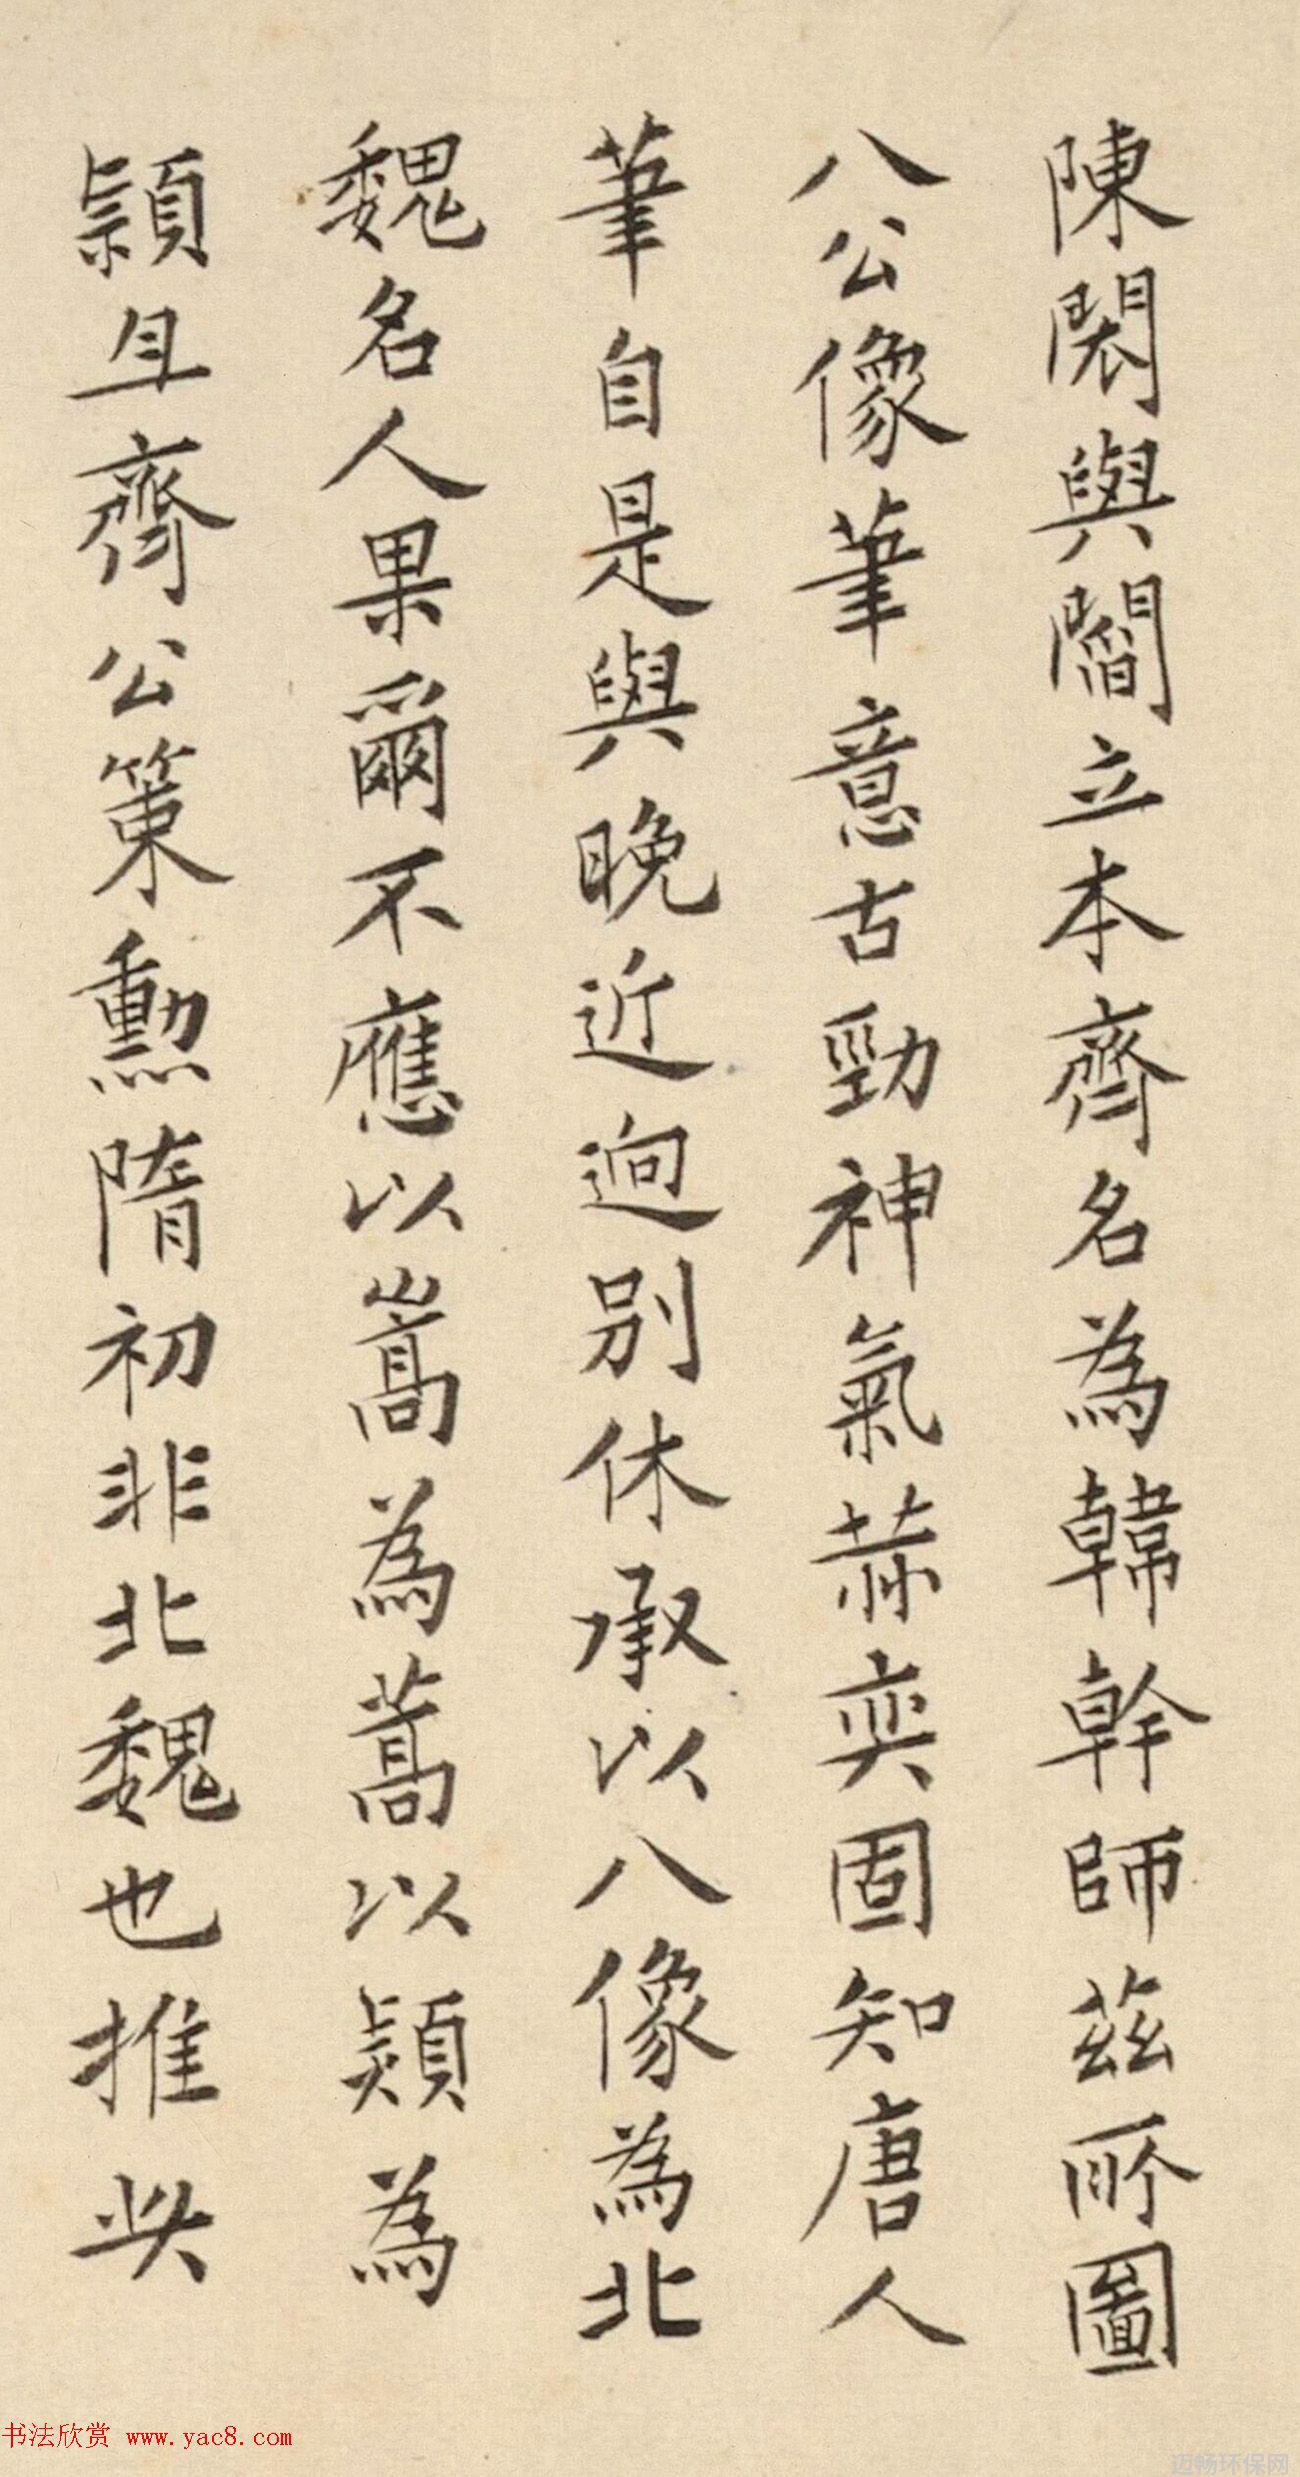 陳閎與閻立本齊名為韓幹師茲所圖
八公像筆意古勁神氣赫奕固知唐人
筆自是與晚近迥別休承以八像為北
魏名人果爾不應以嵩為蒿以熲為
頴且齊公策勳隋初非北魏也推其
书法欣赏 www.yac8.com
迈畅环保网